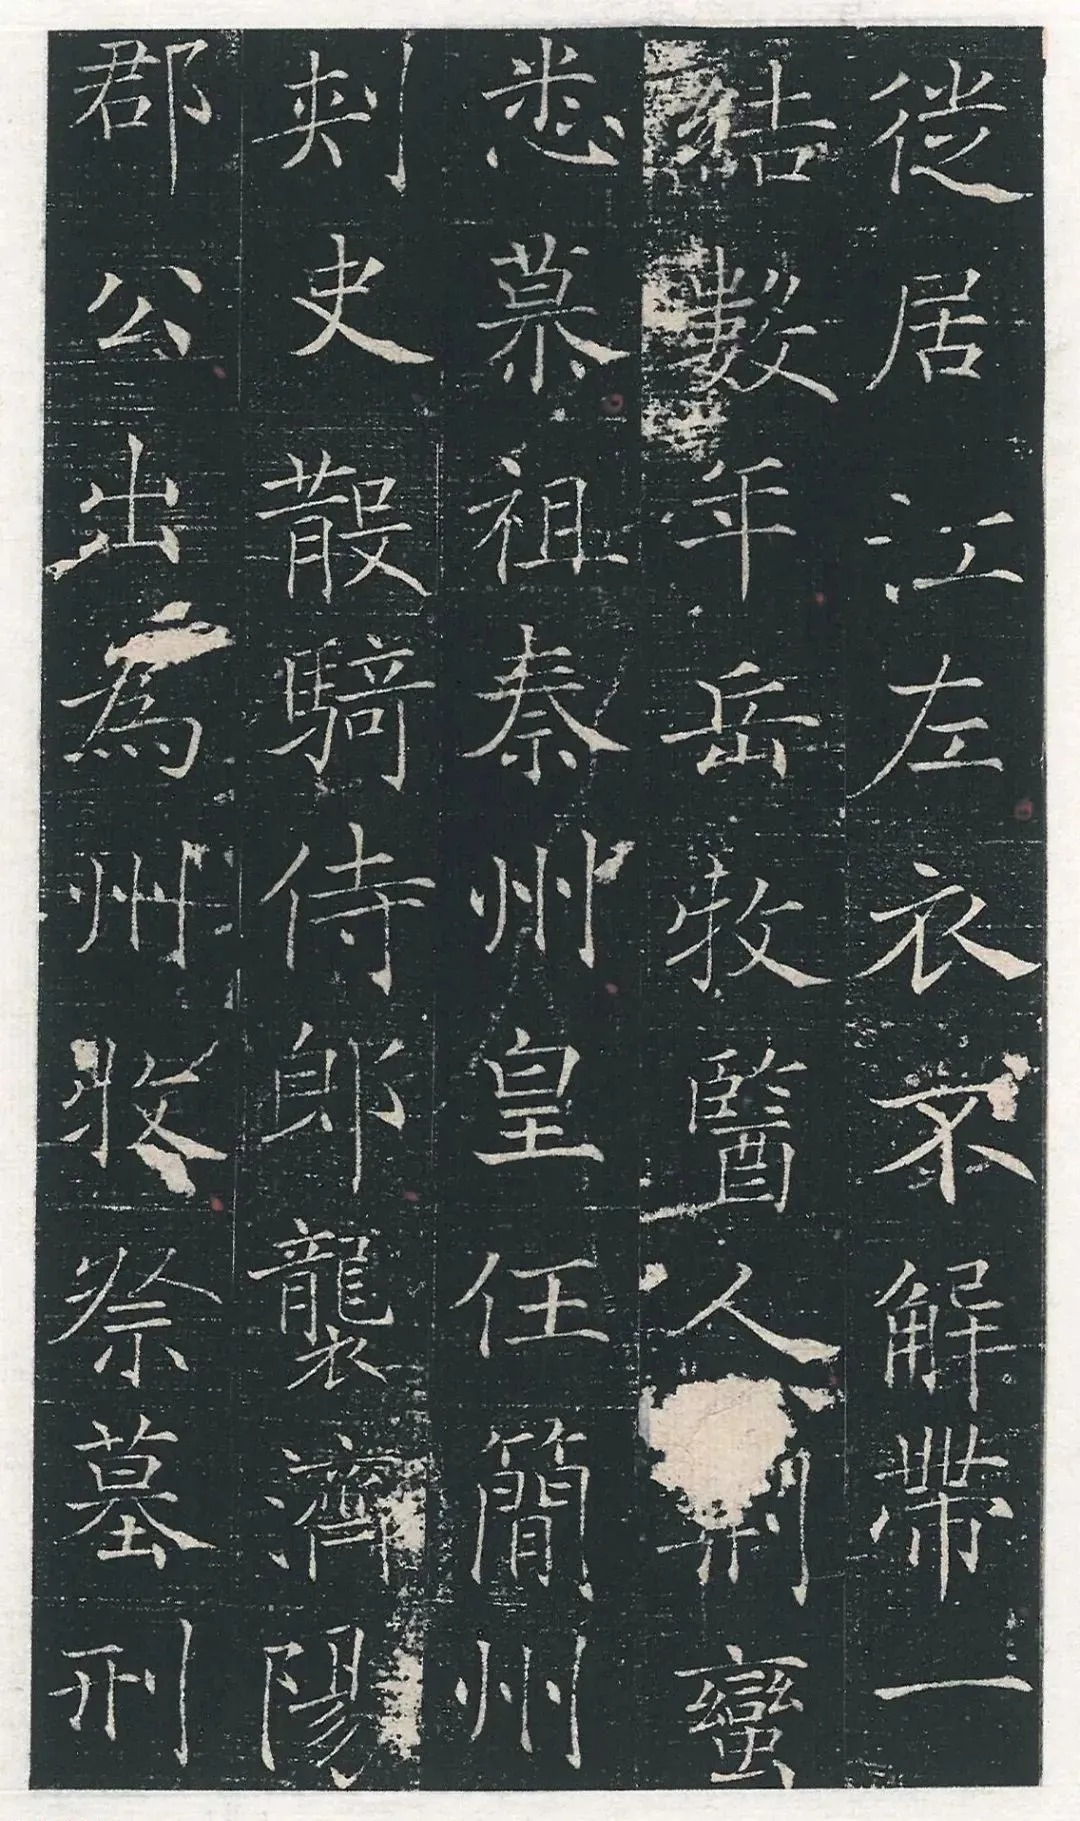 徙居江左衣不解帶一
結數年岳牧醫人荆蠻
悉慕祖秦州皇任簡州
刺史散騎侍郎襲濟陽
郡公出為州牧祭墓刑